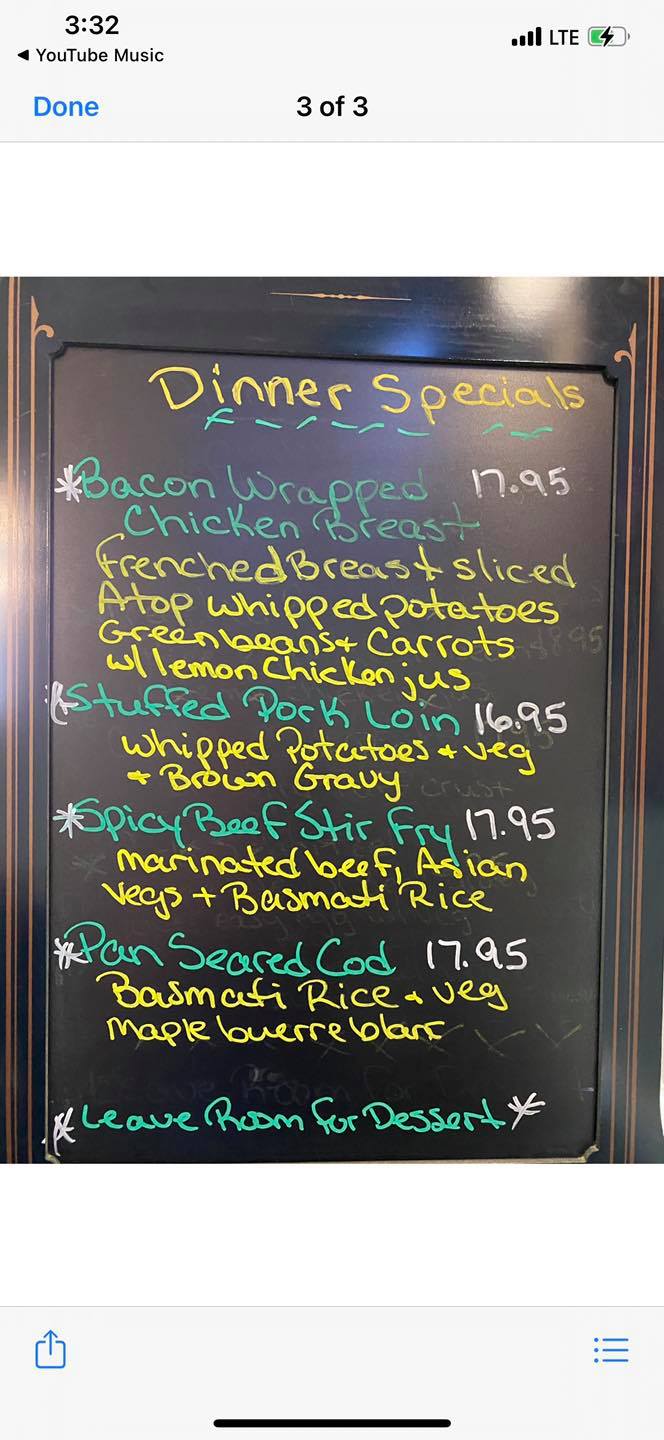 3:32
LTE
◀ YouTube Music
Done
3 of 3
Dinner Specials
*Bacon Wrapped 17.95
Chicken Breast
Frenched Breast sliced
Atop whipped potatoes
Green beans + Carrots
w/ lemon Chicken jus
*Stuffed Pork Loin 16.95
Whipped Potatoes + veg
+ Brown Gravy
*Spicy Beef Stir Fry 17.95
marinated beef, Asian
Vegs + Basmati Rice
*Pan Seared Cod 17.95
Basmati Rice + veg
Maple buerre blanc
*Leave Room for Dessert*